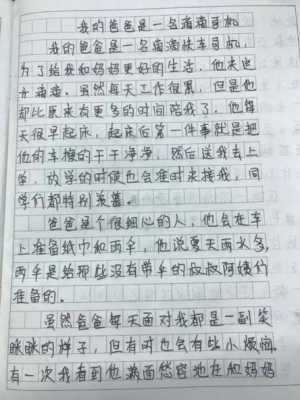 我的爸爸是一名滴滴司机
我的爸爸是一名滴滴快车司机，
为了给我和妈妈更好的生活，他来
开滴滴。虽然每天工作很累，但是他
却比原来有更多的时间陪我了，他每
天很早起床，起床后第一件事就是把
他的车擦的干干净净，然后送我去上
学，放学的时候也会准时来接我，同
学们都特别羡慕。
爸爸是个很细心的人，他会在车
上准备纸巾和雨伞，他说夏天雨水多，
雨伞是给那些没有带伞的叔叔阿姨们
准备的。
虽然爸爸每天面对我都是一副笑
眯眯的样子，但有时也会有些小烦恼。
有一次我看到他满面愁容地在和妈妈